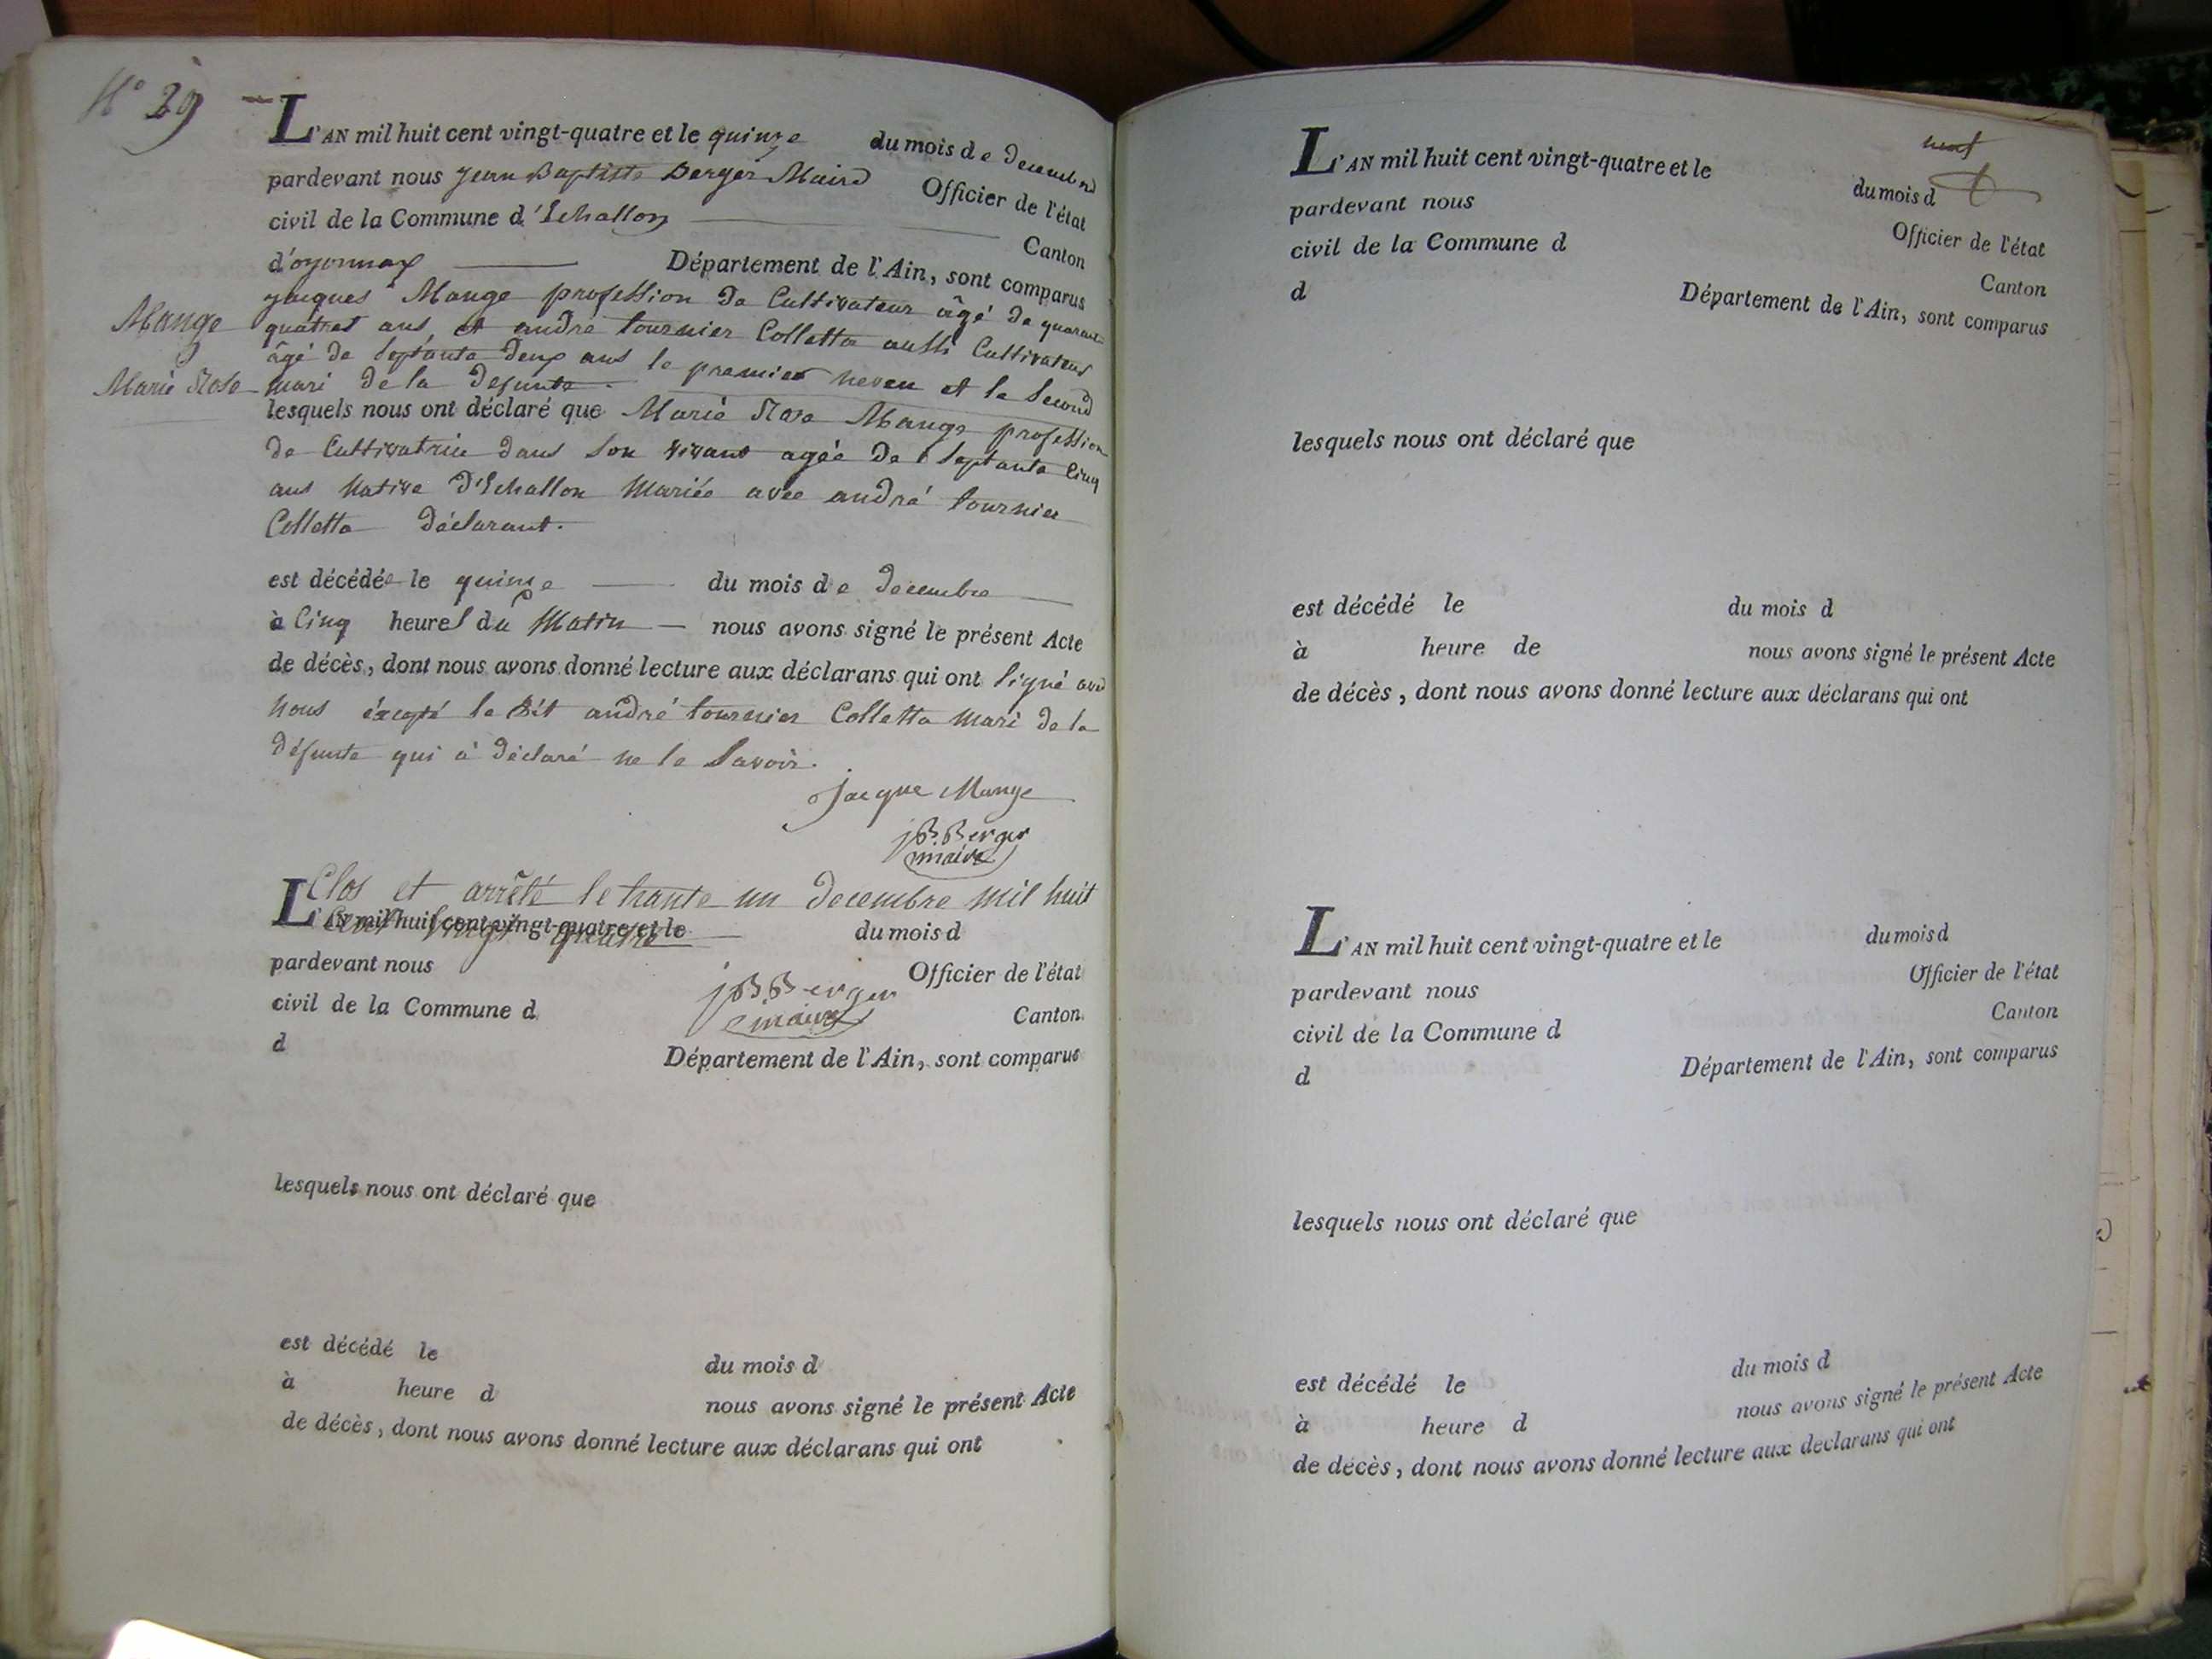 N° 29
L'AN mil huit cent vingt-quatre et le quinze du mois de decembre
pardevant nous Jean Baptiste Berger Maire Officier de l'état
civil de la Commune d'Echallon Canton
d'oyonnax Département de l'Ain, sont comparus
Jacques Mange profession de Cultivateur âgé de quarante
Mange
quatres ans, et andré tournier Colletta aussi Cultivateur
âgé de septante deux ans le premier neveu et le second
Marie Rose
mari de la defunte.
lesquels nous ont déclaré que Marie Rose Mange profession
de Cultivatrice dans son vivant agée de septante cinq
ans native d'Echallon Mariée avec andré tournier
Colletta déclarant.
est décédée le quinze du mois de decembre
à cinq heures du Matin nous avons signé le présent Acte
de décès, dont nous avons donné lecture aux déclarans qui ont signé avec
nous éxcepté le dit andré tournier Colletta mari de la
défunte qui à déclaré ne le savoir.
jacque Mange
jB Berger
maire
Clos et arrêté le trante un decembre mil huit
cent vingt quatre
L'AN mil huit cent vingt-quatre et le du mois d
pardevant nous Officier de l'état
jB Berger
maire
civil de la Commune d Canton
d Département de l'Ain, sont comparus
lesquels nous ont déclaré que
est décédé le du mois d
à heure d nous avons signé le présent Acte
de décès, dont nous avons donné lecture aux déclarans qui ont
neuf
L'AN mil huit cent vingt-quatre et le du mois d
pardevant nous Officier de l'état
civil de la Commune d Canton
d Département de l'Ain, sont comparus
lesquels nous ont déclaré que
est décédé le du mois d
à heure de nous avons signé le présent Acte
de décès, dont nous avons donné lecture aux déclarans qui ont
L'AN mil huit cent vingt-quatre et le du mois d
pardevant nous Officier de l'état
civil de la Commune d Canton
d Département de l'Ain, sont comparus
lesquels nous ont déclaré que
est décédé le du mois d
à heure d nous avons signé le présent Acte
de décès, dont nous avons donné lecture aux déclarans qui ont